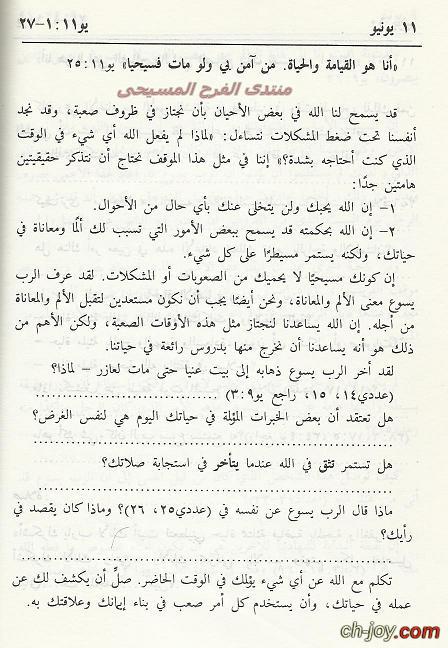 ١١ يونيو يو١١:١-٢٧
«أنا هو القيامة والحياة. من آمن بي ولو مات فسيحيا» يو١١:٢٥
منتدى الفرح المسيحى
قد يسمح لنا الله في بعض الأحيان بأن نجتاز في ظروف صعبة، وقد نجد
أنفسنا تحت ضغط المشكلات نتساءل: «لماذا لم يفعل الله أي شيء في الوقت
الذي كنت أحتاجه بشدة؟» إننا في مثل هذا الموقف نحتاج أن نتذكر حقيقيتين
هامتين جدًا:
١- إن الله يحبك ولن يتخلى عنك بأي حال من الأحوال.
٢- إن الله بحكمته قد يسمح ببعض الأمور التي تسبب لك ألمًا ومعاناة في
حياتك، ولكنه يستمر مسيطرًا على كل شيء.
إن كونك مسيحيًا لا يحميك من الصعوبات أو المشكلات. لقد عرف الرب
يسوع معنى الألم والمعاناة، ونحن أيضًا يجب أن نكون مستعدين لتقبل الألم والمعاناة
من أجله. إن الله يساعدنا لنجتاز مثل هذه الأوقات الصعبة، ولكن الأهم من
ذلك هو أنه يساعدنا أن نخرج منها بدروس رائعة في حياتنا.
لقد أخر الرب يسوع ذهابه إلى بيت عنيا حتى مات لعازر - لماذا؟
(عددي١٤، ١٥، راجع يو٩:٣) ........................................
هل تعتقد أن بعض الخبرات المؤلة في حياتك اليوم هي لنفس الغرض؟
........................................
هل تستمر تثق في الله عندما يتأخر في استجابة صلاتك؟
........................................
ماذا قال الرب يسوع عن نفسه في (عددي٢٥، ٢٦)؟ وماذا كان يقصد في
رأيك؟ ........................................
........................................
تكلم مع الله عن أي شيء يؤلك في الوقت الحاضر. صلِّ أن يكشف لك عن
عمله في حياتك، وأن يستخدم كل أمر صعب في بناء إيمانك وعلاقتك به.
ch-joy.com